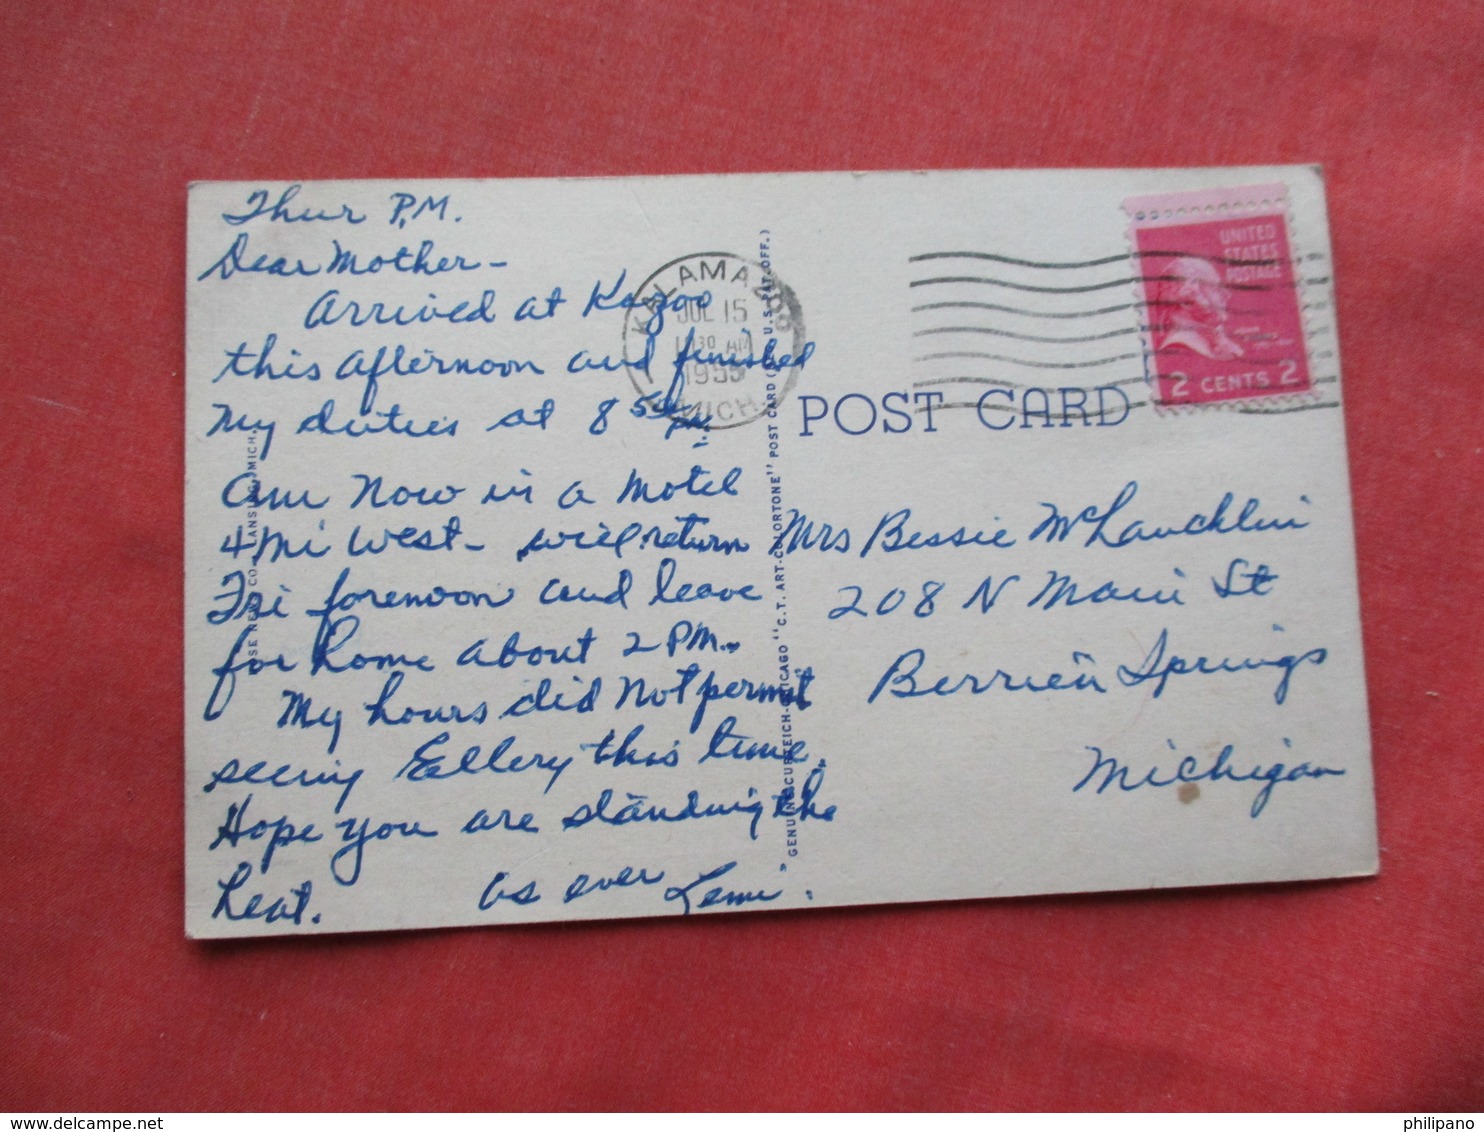 Thur P.M.
Dear Mother-
Arrived at Kazoo
this afternoon and finished
my duties at 8 50 PM.
Am now in a Motel
4 mi west - will return
Fri forenoon and leave
for home about 2 PM.
My hours did not permit
seeing Eellery this time.
Hope you are standing the
heat. as ever
KALAMAZOO
JUL 15
AM
1955
MICH.
GENUINE CURTEICH-CHICAGO "C.T. ART-COLORTONE" POST CARD (REG. U.S. PAT. OFF.)
POST CARD
UNITED
STATES
POSTAGE
2 CENTS 2
Mrs Bessie McLauchlin
208 N Main St
Berrien Springs
Michigan
www.delcampe.net
philipano